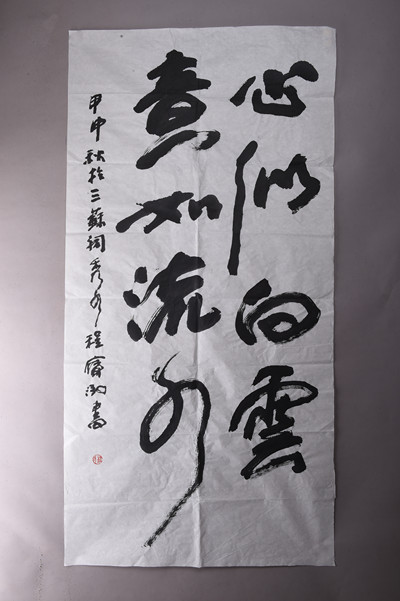 心似白雲
意如流水
甲申秋於三蘇祠 程 書